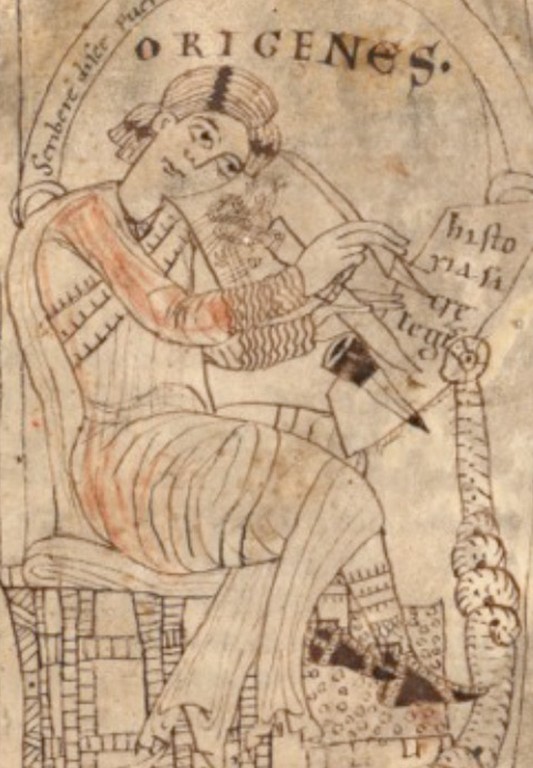 Scribere disce puer
ORIGENES.
histo
ria·si
legis